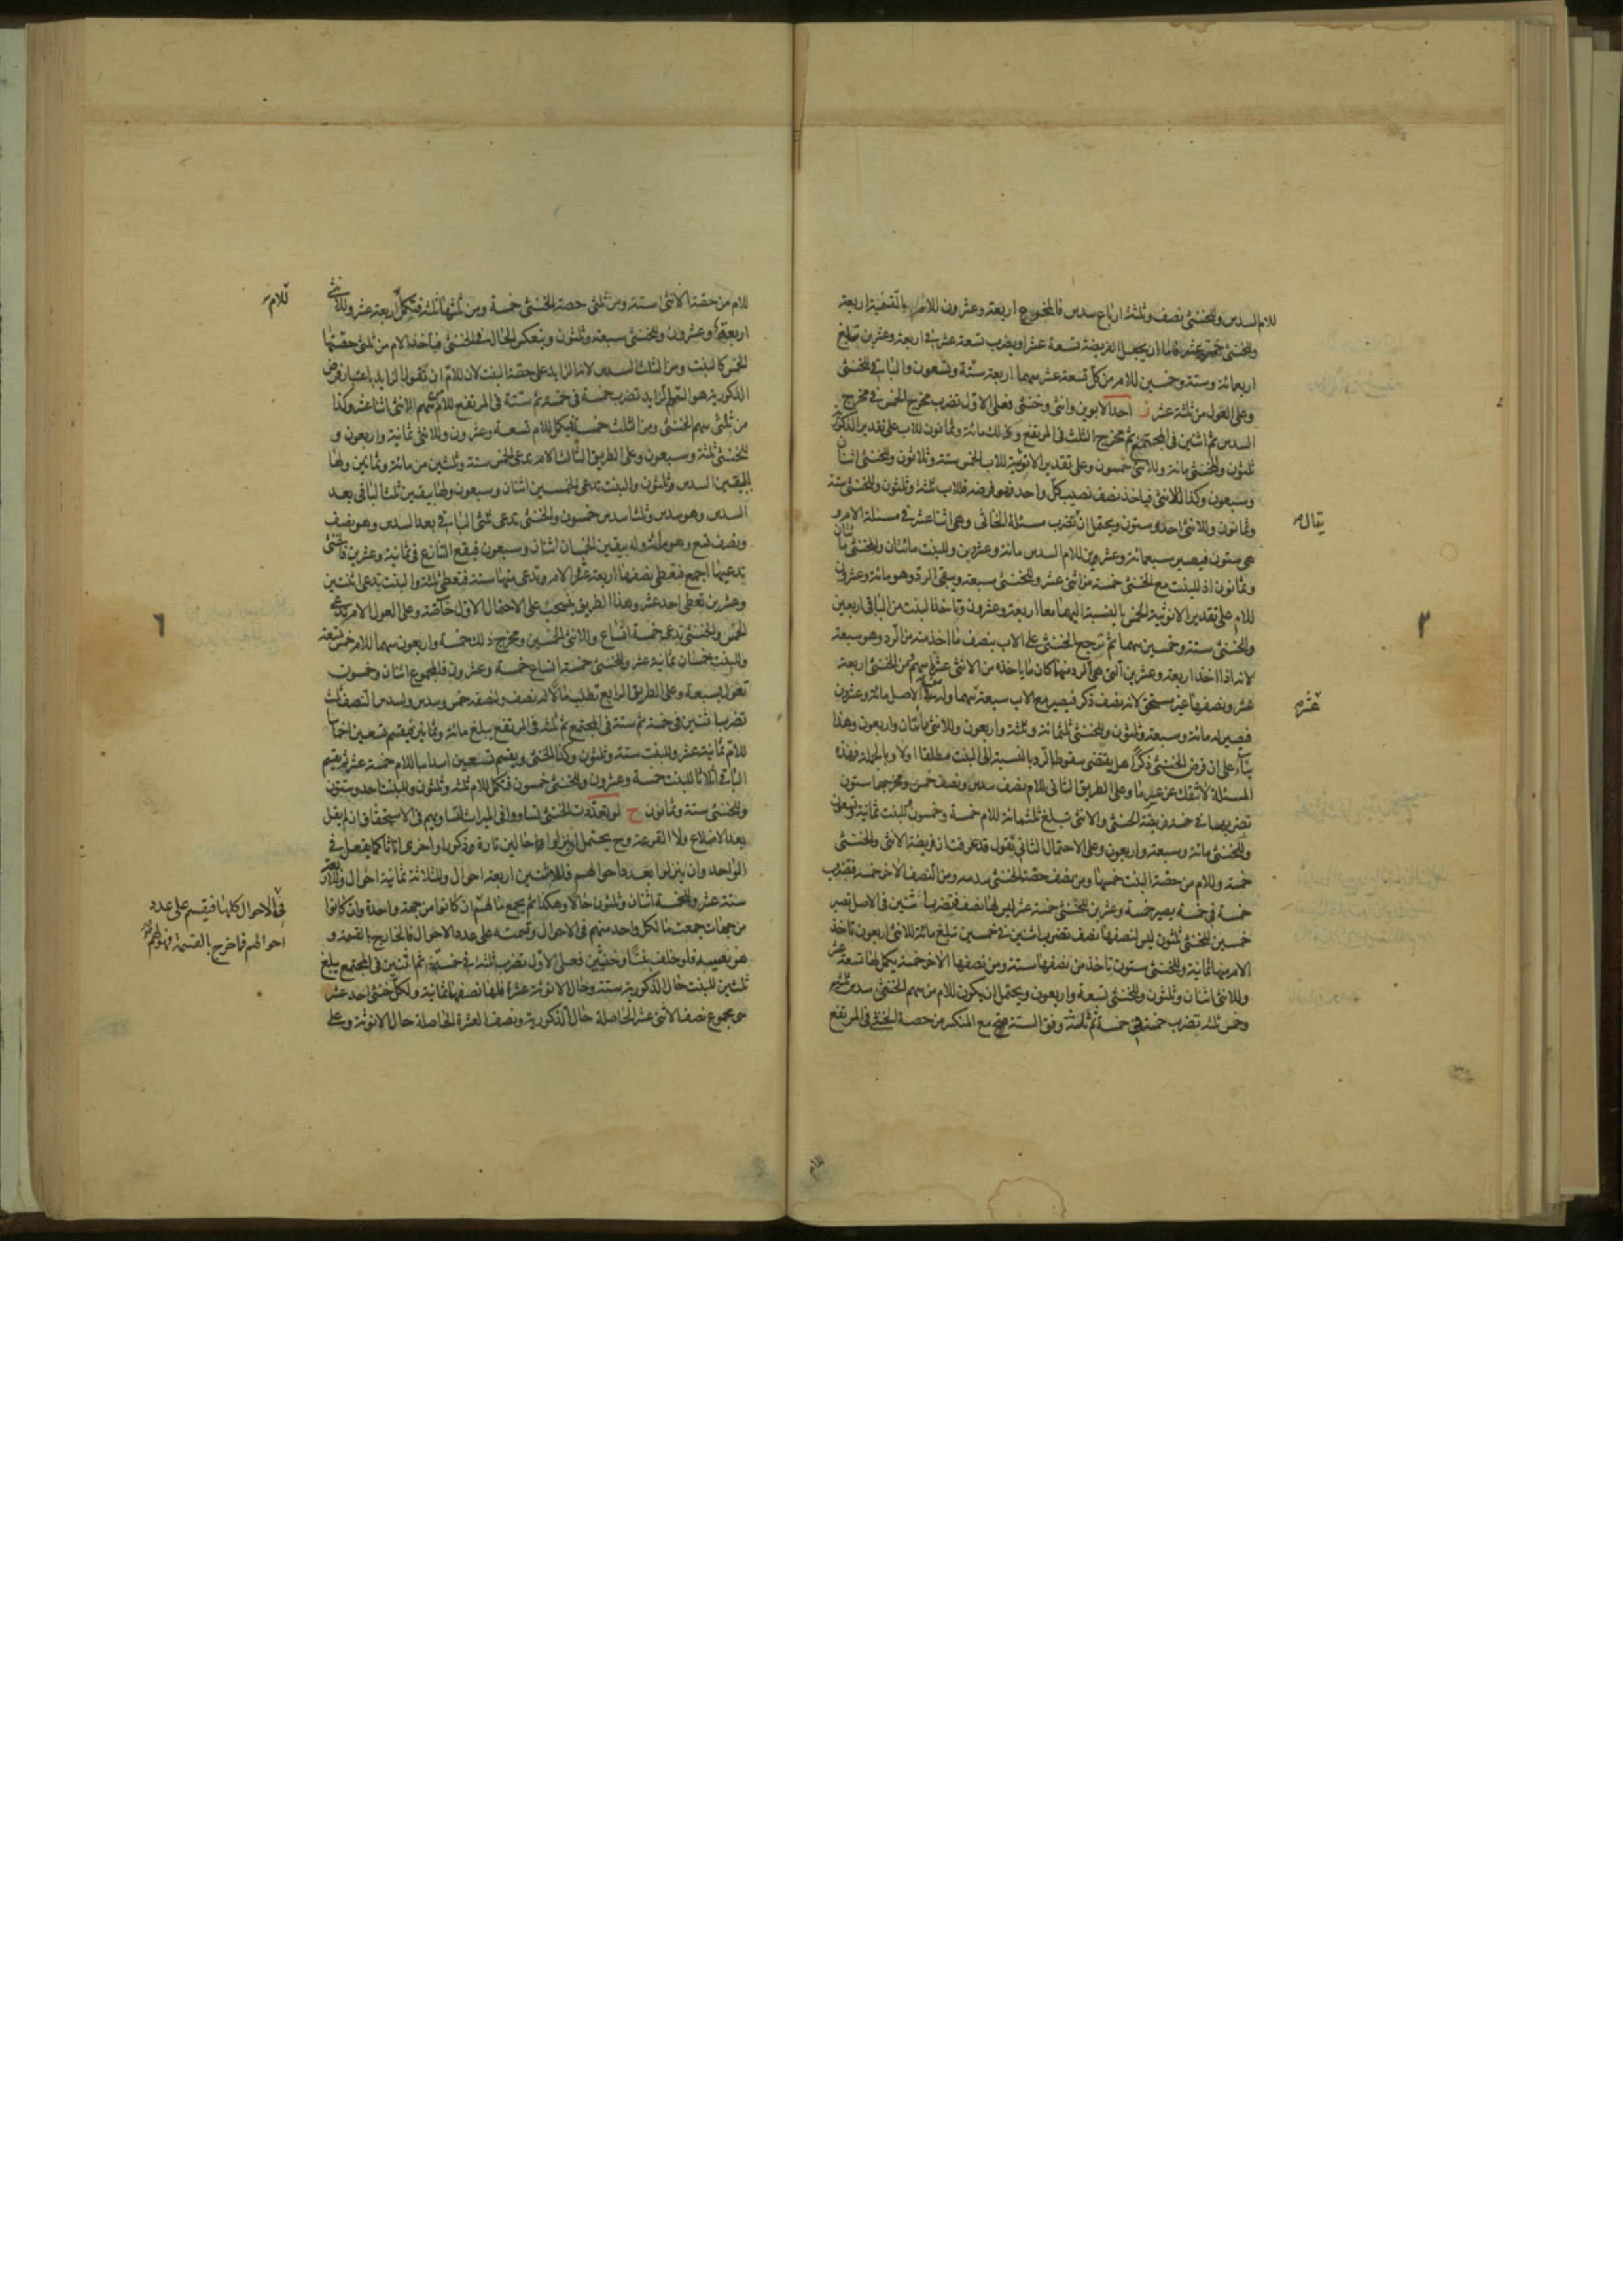 للام السدس وللخنثى نصف وثلثة ارباع سدس فالمخرج اربعة وعشرون للام بالتسمية اربعة
وللخنثى خمسة عشر فاما ان يجعل الفريضة تسعة عشر او يضرب تسعة عشر في اربعة وعشرين تبلغ
اربعمائة وستة وخمسين للام من كل تسعة عشر سهما اربعة ستة وتسعون والباقي للخنثى
وعلى العول من ثلثة عشر ز احد الابوين وانثى وخنثى فعلى الاول تضرب مخرج الخمس في مخرج
السدس ثم اثنين في المجتمع ثم مخرج الثلث في المرتفع وذلك مائة وثمانون للاب على تقدير الذكورية
ثلثون وللخنثى مائة وللانثى خمسون وعلى تقدير الانوثية للاب الخمس ستة وثلاثون وللخنثى اثنان
وسبعون وكذا للانثى فياخذ نصف نصيب كل واحد فهو فرضه فللاب ثلثة وثلثون وللخنثى ستة
وثمانون وللانثى احد وستون ويحتمل ان تضرب مسئلة الخناثى وهي اثنا عشر في مسئلة الام و
هي ستون فيصير سبعمائة وعشرين للام السدس مائة وعشرين وللبنت مائتان وللخنثى مائتان
وثمانون اذ للبنت مع الخنثى خمسة من اثنى عشر وللخنثى سبعة ويبقى الرد وهو مائة وعشرون
للام على تقدير الانوثية الخمس بالنسبة اليهما معا اربعة وعشرون وتاخذ البنت من الباقي اربعين
والخنثى ستة وخمسين سهما ثم ترجع الخنثى على الاب بنصف ما اخذ منه من الرد وهو سبعة
لانه اذا اخذ اربعة وعشرين التي هي الرد منهما كان ما ياخذه من الانثى عشرة اسهم ومن الخنثى اربعة
عشر ونصفها غير مستحق لانه نصف ذكر فيصير مع الاب سبعة سهما وله في الاصل مائة وعشرون
فصير له مائة وسبعة وثلثون وللخنثى ثلثمائة وثلثة واربعون وللانثى مائتان واربعون وهذا
بناء على ان فرض الخنثى ذكرا هل يقتضى سقوط الرد بالنسبة الى البنت مطلقا او لا وبالجملة فهذه
المسئلة لا تنفك عن عسر ما وعلى الطريق الثاني للام نصف سدس ونصف خمس ومخرجهما ستون
تضربها في خمسة فريضة الخنثى والانثى تبلغ ثلثمائة للام خمسة وخمسون للبنت ثمانية وتسعون
وللخنثى مائة وسبعة واربعون وعلى الاحتمال الثاني تقول قد عرفت ان فريضة الانثى والخنثى
خمسة وللام من حصة البنت خمسها ومن نصف حصة الخنثى سدسه ومن النصف الاخر خمسه فتضرب
خمسة في خمسة يصير خمسة وعشرين للخنثى خمسة عشر ليس لها نصف فتضرب اثنين في الاصل تصير
خمسين للخنثى ثلثون ليس لنصفها نصف تضرب اثنين في خمسين تبلغ مائة للانثى اربعون تاخذ
الام منها ثمانية وللخنثى ستون تاخذ من نصفها ستة ومن نصفها الاخر خمسة يكمل لها تسعة عشر
وللانثى اثنان وثلثون وللخنثى تسعة واربعون ويحتمل ان يكون للام من سهم الخنثى سدس ثلثيه
وخمس ثلثه تضرب خمسة في خمسة ثم ثلثة وفق الستة مع المنكسر من حصة الخنثى في المرتفع
يقال
عشر
٣
للام
للام من حصة الانثى ستة ومن ثلثى حصة الخنثى خمسة ومن ثلثها ثلثة فتكمل اربعة عشر وللانثى
اربعة وعشرون وللخنثى سبعة وثلثون وينعكس الحال في الخنثى فياخذ الام من ثلثى حصتها
الخمس كالبنت ومن الثلث السدس لان الزايد على حصة البنت لان للام ان تقول الزايد باعتبار فرض
الذكورية هو الثلث الزايد تضرب خمسة في خمسة ثم ستة في المرتفع للام من سهم الانثى اثنا عشر وكذا
من ثلثى سهم الخنثى ومن الثلث خمسة فيكمل للام تسعة وعشرون وللانثى ثمانية واربعون و
للخنثى ثلثة وسبعون وعلى الطريق الثالث الام تدعى الخمس ستة وثلثين من مائة وثمانين ولها
باليقين السدس وثلثون والبنت تدعى الخمسين اثنان وسبعون ولها بيقين ثلث الباقي بعد
السدس وهو سدس وثلثا سدس خمسون والخنثى تدعى ثلثى الباقي بعد السدس وهو نصف
ونصف تسع وهو مائة وله بيقين الخمسان اثنان وسبعون فيقع التنازع في ثمانية وعشرين فالخنثى
تدعيها اجمع فتعطى نصفها اربعة عشر والام تدعى منها ستة فتعطى ثلثة والبنت تدعى اثنين
وعشرين تعطى احد عشر وهذا الطريق ينسحب على الاحتمال الاول خاصة وعلى العول الام تدعى
الخمس والخنثى تدعى خمسة اتساع والانثى الخمسين ومخرج ذلك خمسة واربعون سهما للام خمس تسعة
وللبنت خمسان ثمانية عشر وللخنثى خمسة اتساع خمسة وعشرون فالمجموع اثنان وخمسون
تعول بسبعة وعلى الطريق الرابع تطلب مالا له نصف ولنصفه خمس وسدس ولسدس النصف ثلث
تضرب اثنين في خمسة ثم ستة في المجتمع ثم ثلثة في المرتفع يبلغ مائة وثمانين فيقسم تسعين اخماسا
للام ثمانية عشر وللبنت ستة وثلثون وكذا للخنثى ويقسم تسعين اسداسا للام خمسة عشر ثم يقسم
الباقي اثلاثا للبنت خمسة وعشرون وللخنثى خمسون فكمل للام ثلثه وثلثون وللبنت احد وستون
وللخنثى ستة وثمانون ح لو تعددت الخنثى تساووا في الميراث لتساويهم في الاستحقاق ان لم يقل
بعد الاضلاع ولا القرعة وح يحتمل ان ينزلوا حالين تارة ذكورا واخرى اناثا كما يفعل في
الواحد وان ينزلوا بعدد احوالهم فللاثنين اربعة احوال وللثلاثة ثمانية احوال وللاربعة
ستة عشر وللخمسة اثنان وثلثون حالا وهكذا ثم يجمع ما لهم ان كانوا من جهة واحدة وان كانوا
من جهات جمعت ما لكل واحد منهم في الاحوال وقسمته على عدد الاحوال فالخارج بالقسمة و
هو نصيبه فلو خلف بنتا وخنثيين فعلى الاول تضرب ثلثة في خمسة ثم اثنين في المجتمع يبلغ
ثلثين للبنت حال الذكورية ستة وحال الانوثة عشرة فلها نصفها ثمانية ولكل خنثى احد عشر
هي مجموع نصف الاثنى عشر الحاصلة حال الذكورية ونصف العشرة الحاصلة حال الانوثة وعلى
للام
٦
في الاحوال كلها فيقسم على عدد
احوالهم فما خرج بالقسمة فهو لهم